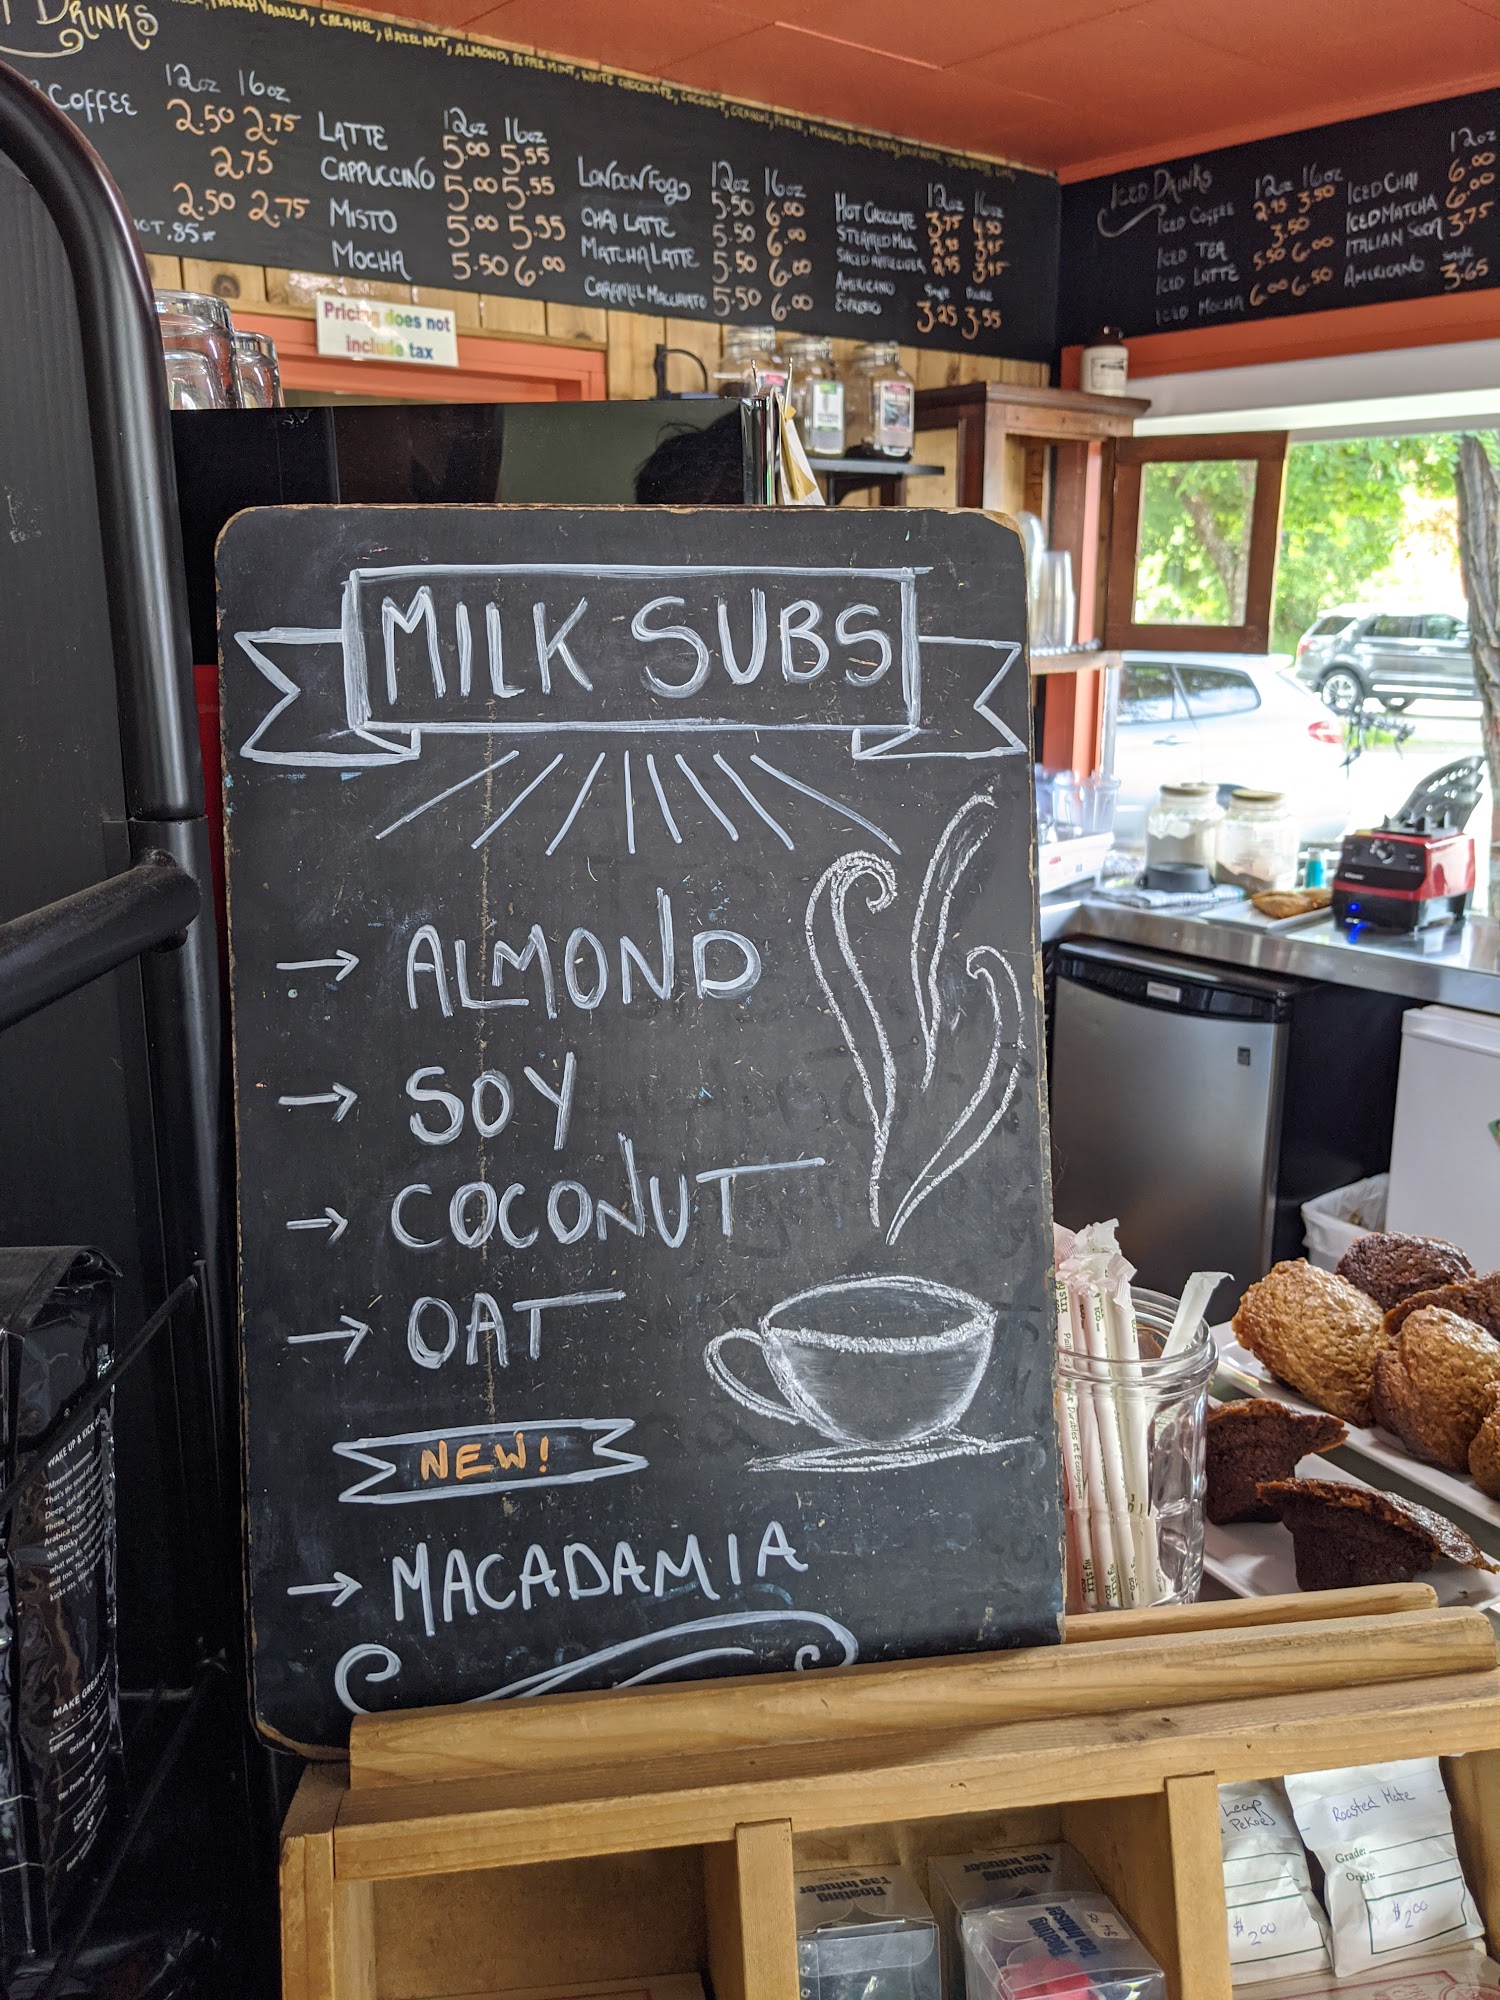 DRINKS
VANILLA, CARAMEL, HAZELNUT, ALMOND, PEPPERMINT, WHITE CHOCOLATE, COCONUT, ORANGE,
12oz 16oz
COFFEE 2.50 2.75
2.75
2.50 2.75
12oz 16oz
LATTE 5.00 5.55
CAPPUCCINO 5.00 5.55
MISTO 5.00 5.55
MOCHA 5.50 6.00
12oz 16oz
LONDON FOG 5.50 6.00
CHAI LATTE 5.50 6.00
MATCHA LATTE 5.50 6.00
CARAMEL MACCHIATO 5.50 6.00
12oz 16oz
HOT CHOCOLATE 3.75 4.50
STEAMED MILK 2.95 3.45
SPICED APPLE CIDER 2.95 3.45
AMERICANO
ESPRESSO 3.25 3.55
ICED DRINKS
12oz 16oz
ICED COFFEE 2.95 3.50
ICED TEA 3.50
ICED LATTE 5.50 6.00
ICED MOCHA 6.00 6.50
12oz
ICED CHAI 6.00
ICED MATCHA 6.00
ITALIAN SODA 3.75
AMERICANO 3.65
Pricing does not
include tax
MILK SUBS
→ ALMOND
→ SOY
→ COCONUT
→ OAT
NEW!
→ MACADAMIA
WAKE UP & KICK
MAKE GREA
Floating
Tea Infuser
Floating
Tea Infuser
Floating
Tea Infuser
Leap
Pekoe
$2.00
Roasted Mate
Grade:
Origin:
$2.00